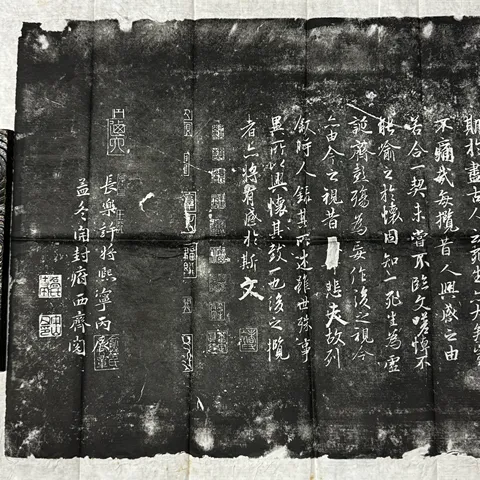 期於盡古人云死生亦大矣豈
不痛哉每攬昔人興感之由
若合一契未嘗不臨文嗟悼不
能喻之於懷固知一死生為虛
誕齊彭殤為妄作後之視今
亦由今之視昔悲夫故列
敘時人錄其所述雖世殊事
異所以興懷其致一也後之攬
者亦將有感於斯文
長樂許將熙寧丙辰
孟冬開封府西齊閱